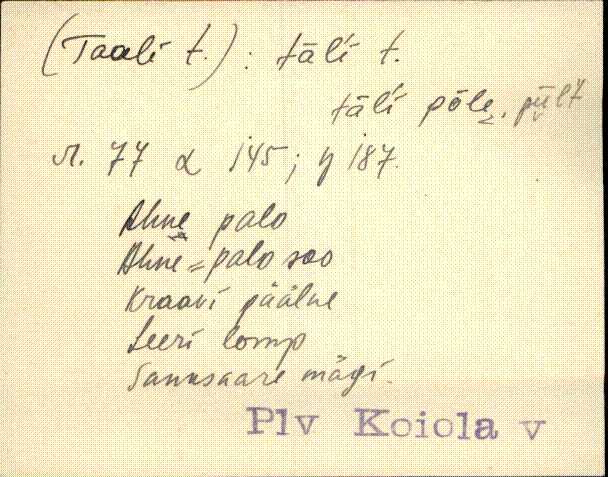 (Taali t.) : täli t.
täli põle, piilt
n. 77 α 145; y 187.
Ahne palo
Ahne = palo soo
Kraavi päälne
Leeri lomp
Sannsaare mägi.
Plv Koiola v